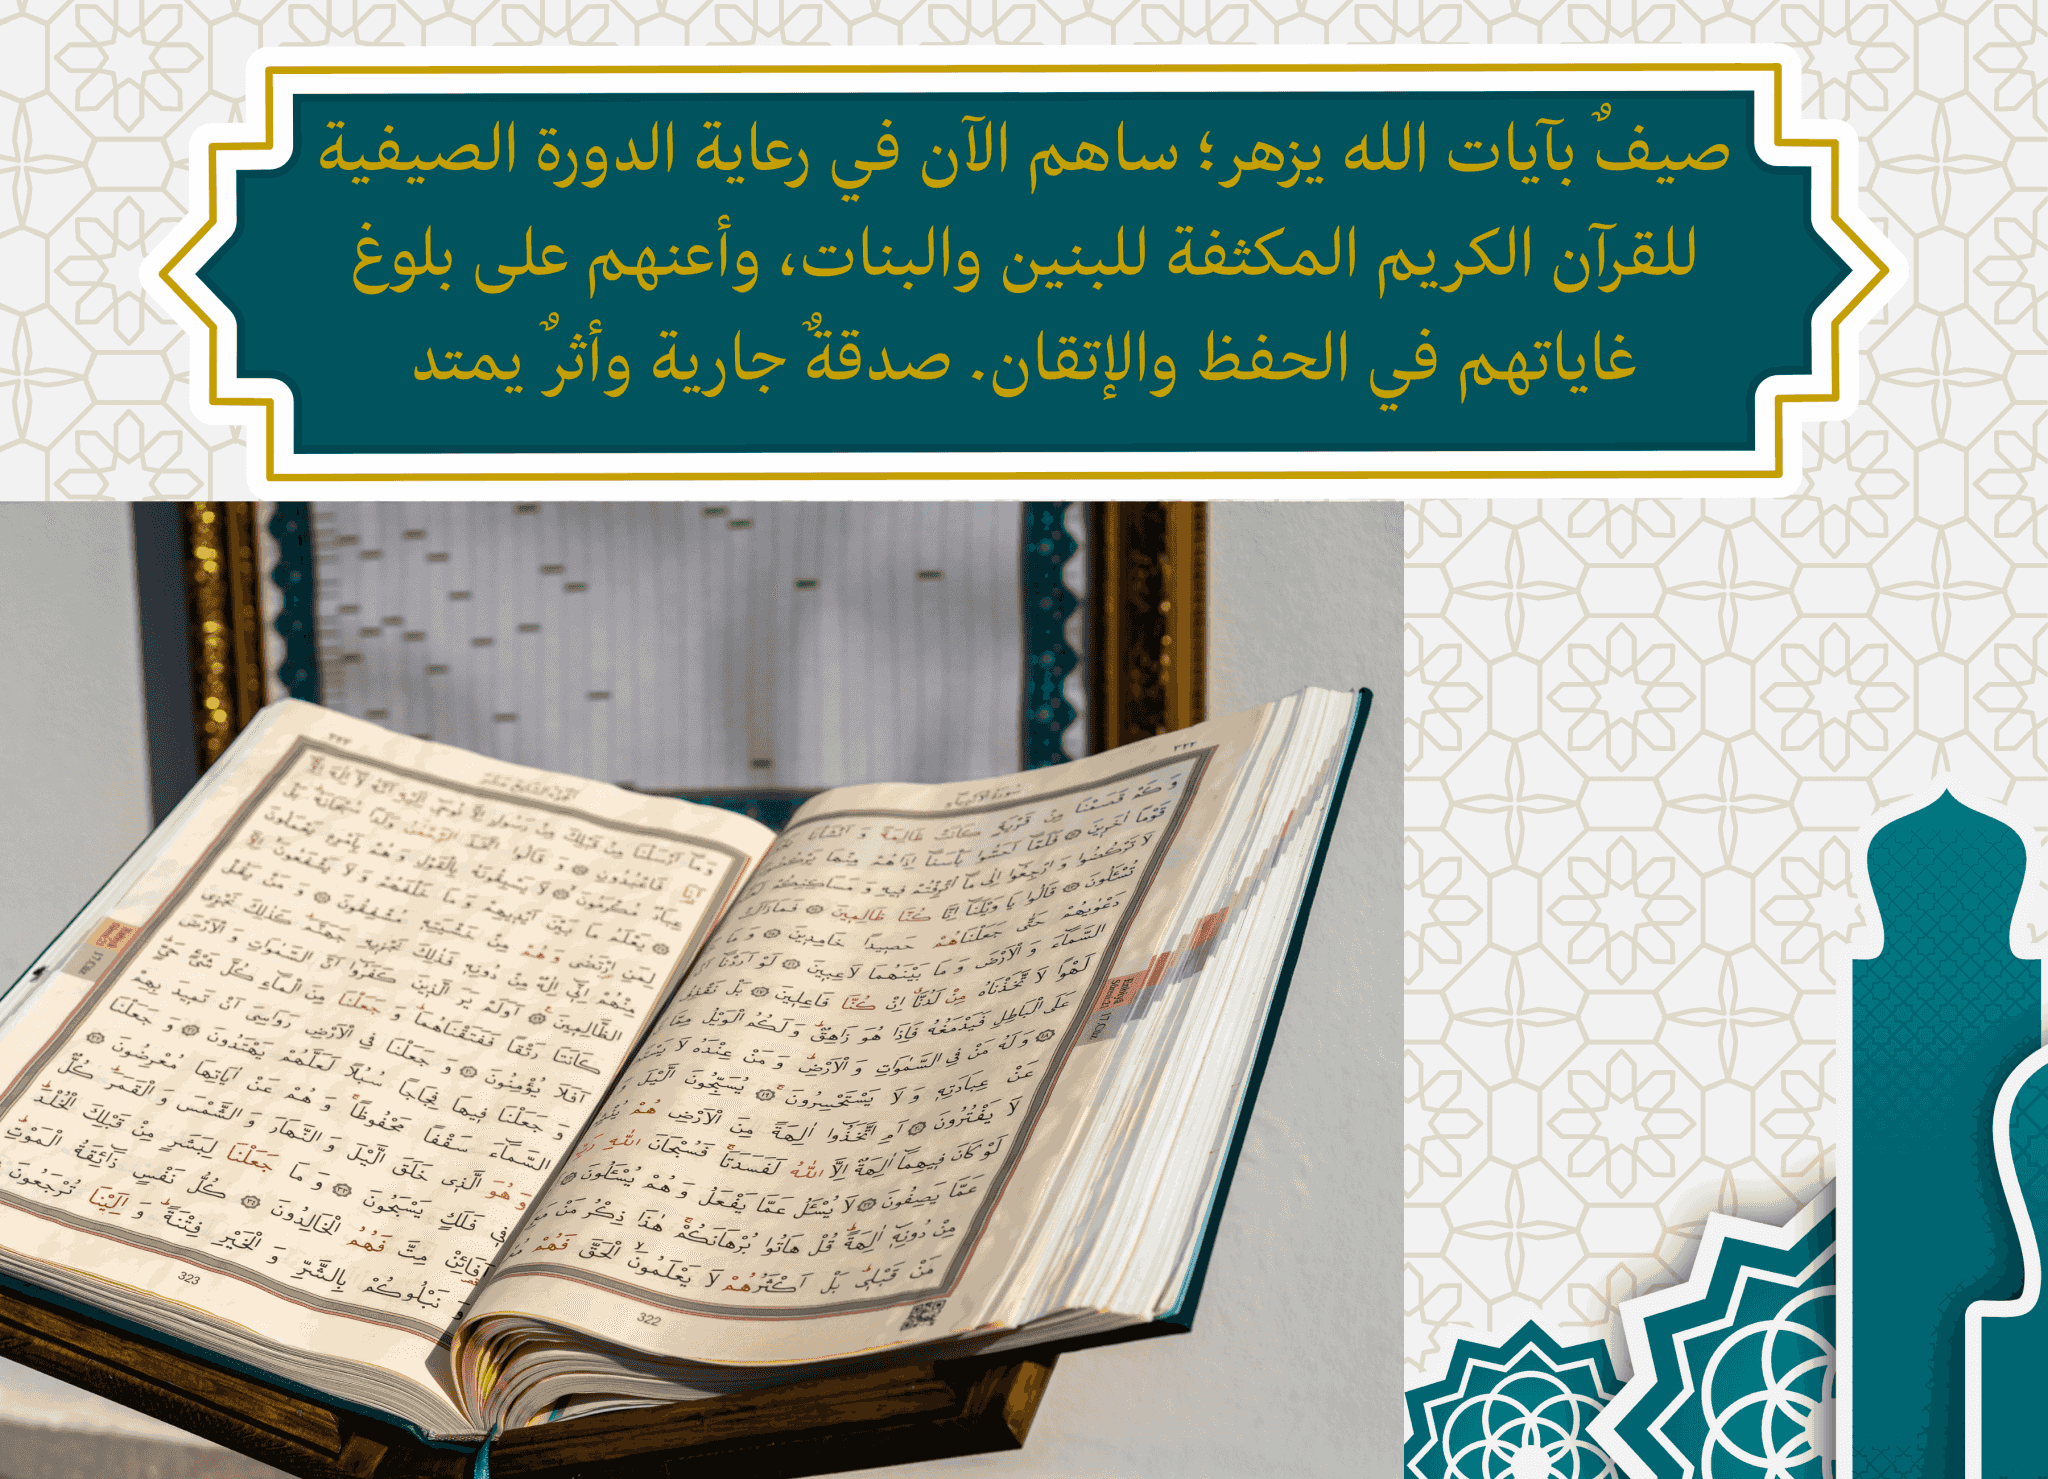 صيفٌ بآيات الله يزهر؛ ساهم الآن في رعاية الدورة الصيفية
للقرآن الكريم المكثفة للبنين والبنات، وأعنهم على بلوغ
غاياتهم في الحفظ والإتقان. صدقةٌ جارية وأثرٌ يمتد
٣٢٢
سورة الانبياء
وَ كَمْ قَصَمْنَا مِنْ قَرْيَةٍ كَانَتْ ظَالِمَةً وَ اَنْشَأْنَا
قَوْمًا اٰخَرِينَ فَلَمَّا اَحَسُّوا بَأْسَنَا اِذَا هُمْ مِنْهَا يَرْكُضُونَ
لَا تَرْكُضُوا وَ ارْجِعُوا اِلٰى مَا اُتْرِفْتُمْ فِيهِ وَ مَسَاكِنِكُمْ
تُسْـَٔلُونَ قَالُوا يَا وَيْلَنَا اِنَّا كُنَّا ظَالِمِينَ فَمَا زَالَتْ
دَعْوٰيهُمْ حَتّٰى جَعَلْنَاهُمْ حَصِيدًا خَامِدِينَ وَ مَا
السَّمَاءَ وَ الْاَرْضَ وَ مَا بَيْنَهُمَا لَاعِبِينَ لَوْ اَرَدْنَا اَنْ
لَهْوًا لَاتَّخَذْنَاهُ مِنْ لَدُنَّا اِنْ كُنَّا فَاعِلِينَ بَلْ نَقْذِفُ
عَلَى الْبَاطِلِ فَيَدْمَغُهُ فَاِذَا هُوَ زَاهِقٌ وَ لَكُمُ الْوَيْلُ مِمَّا
وَ لَهُ مَنْ فِي السَّمٰوَاتِ وَ الْاَرْضِ وَ مَنْ عِنْدَهُ لَا
عَنْ عِبَادَتِهِ وَ لَا يَسْتَحْسِرُونَ يُسَبِّحُونَ الَّيْلَ
لَا يَفْتُرُونَ اَمِ اتَّخَذُوا اٰلِهَةً مِنَ الْاَرْضِ هُمْ
لَوْ كَانَ فِيهِمَا اٰلِهَةٌ اِلَّا اللّٰهُ لَفَسَدَتَا فَسُبْحَانَ اللّٰهِ رَبِّ
عَمَّا يَصِفُونَ لَا يُسْـَٔلُ عَمَّا يَفْعَلُ وَ هُمْ يُسْـَٔلُونَ
مِنْ دُونِهِ اٰلِهَةً قُلْ هَاتُوا بُرْهَانَكُمْ هٰذَا ذِكْرُ مَنْ
مَنْ قَبْلِي بَلْ اَكْثَرُهُمْ لَا يَعْلَمُونَ الْحَقَّ فَهُمْ
322
٣٢٣
وَ مَا اَرْسَلْنَا مِنْ قَبْلِكَ مِنْ رَسُولٍ اِلَّا نُوحِي اِلَيْهِ اَنَّهُ لَا اِلٰهَ اِلَّا
اَنَا فَاعْبُدُونِ وَ قَالُوا اتَّخَذَ الرَّحْمٰنُ وَلَدًا سُبْحَانَهُ بَلْ
عِبَادٌ مُكْرَمُونَ لَا يَسْبِقُونَهُ بِالْقَوْلِ وَ هُمْ بِاَمْرِهِ يَعْمَلُونَ
يَعْلَمُ مَا بَيْنَ اَيْدِيهِمْ وَ مَا خَلْفَهُمْ وَ لَا يَشْفَعُونَ اِلَّا
لِمَنِ ارْتَضٰى وَ هُمْ مِنْ خَشْيَتِهِ مُشْفِقُونَ وَ مَنْ يَقُلْ
مِنْهُمْ اِنِّي اِلٰهٌ مِنْ دُونِهِ فَذٰلِكَ نَجْزِيهِ جَهَنَّمَ كَذٰلِكَ نَجْزِي
الظَّالِمِينَ اَوَلَمْ يَرَ الَّذِينَ كَفَرُوا اَنَّ السَّمٰوَاتِ وَ الْاَرْضَ
كَانَتَا رَتْقًا فَفَتَقْنَاهُمَا وَ جَعَلْنَا مِنَ الْمَاءِ كُلَّ شَيْءٍ حَيٍّ
اَفَلَا يُؤْمِنُونَ وَ جَعَلْنَا فِي الْاَرْضِ رَوَاسِيَ اَنْ تَمِيدَ بِهِمْ
وَ جَعَلْنَا فِيهَا فِجَاجًا سُبُلًا لَعَلَّهُمْ يَهْتَدُونَ وَ جَعَلْنَا
السَّمَاءَ سَقْفًا مَحْفُوظًا وَ هُمْ عَنْ اٰيَاتِهَا مُعْرِضُونَ
وَ هُوَ الَّذِي خَلَقَ الَّيْلَ وَ النَّهَارَ وَ الشَّمْسَ وَ الْقَمَرَ كُلٌّ
فِي فَلَكٍ يَسْبَحُونَ وَ مَا جَعَلْنَا لِبَشَرٍ مِنْ قَبْلِكَ الْخُلْدَ
اَفَائِنْ مِتَّ فَهُمُ الْخَالِدُونَ كُلُّ نَفْسٍ ذَائِقَةُ الْمَوْتِ
وَ نَبْلُوكُمْ بِالشَّرِّ وَ الْخَيْرِ فِتْنَةً وَ اِلَيْنَا تُرْجَعُونَ
323